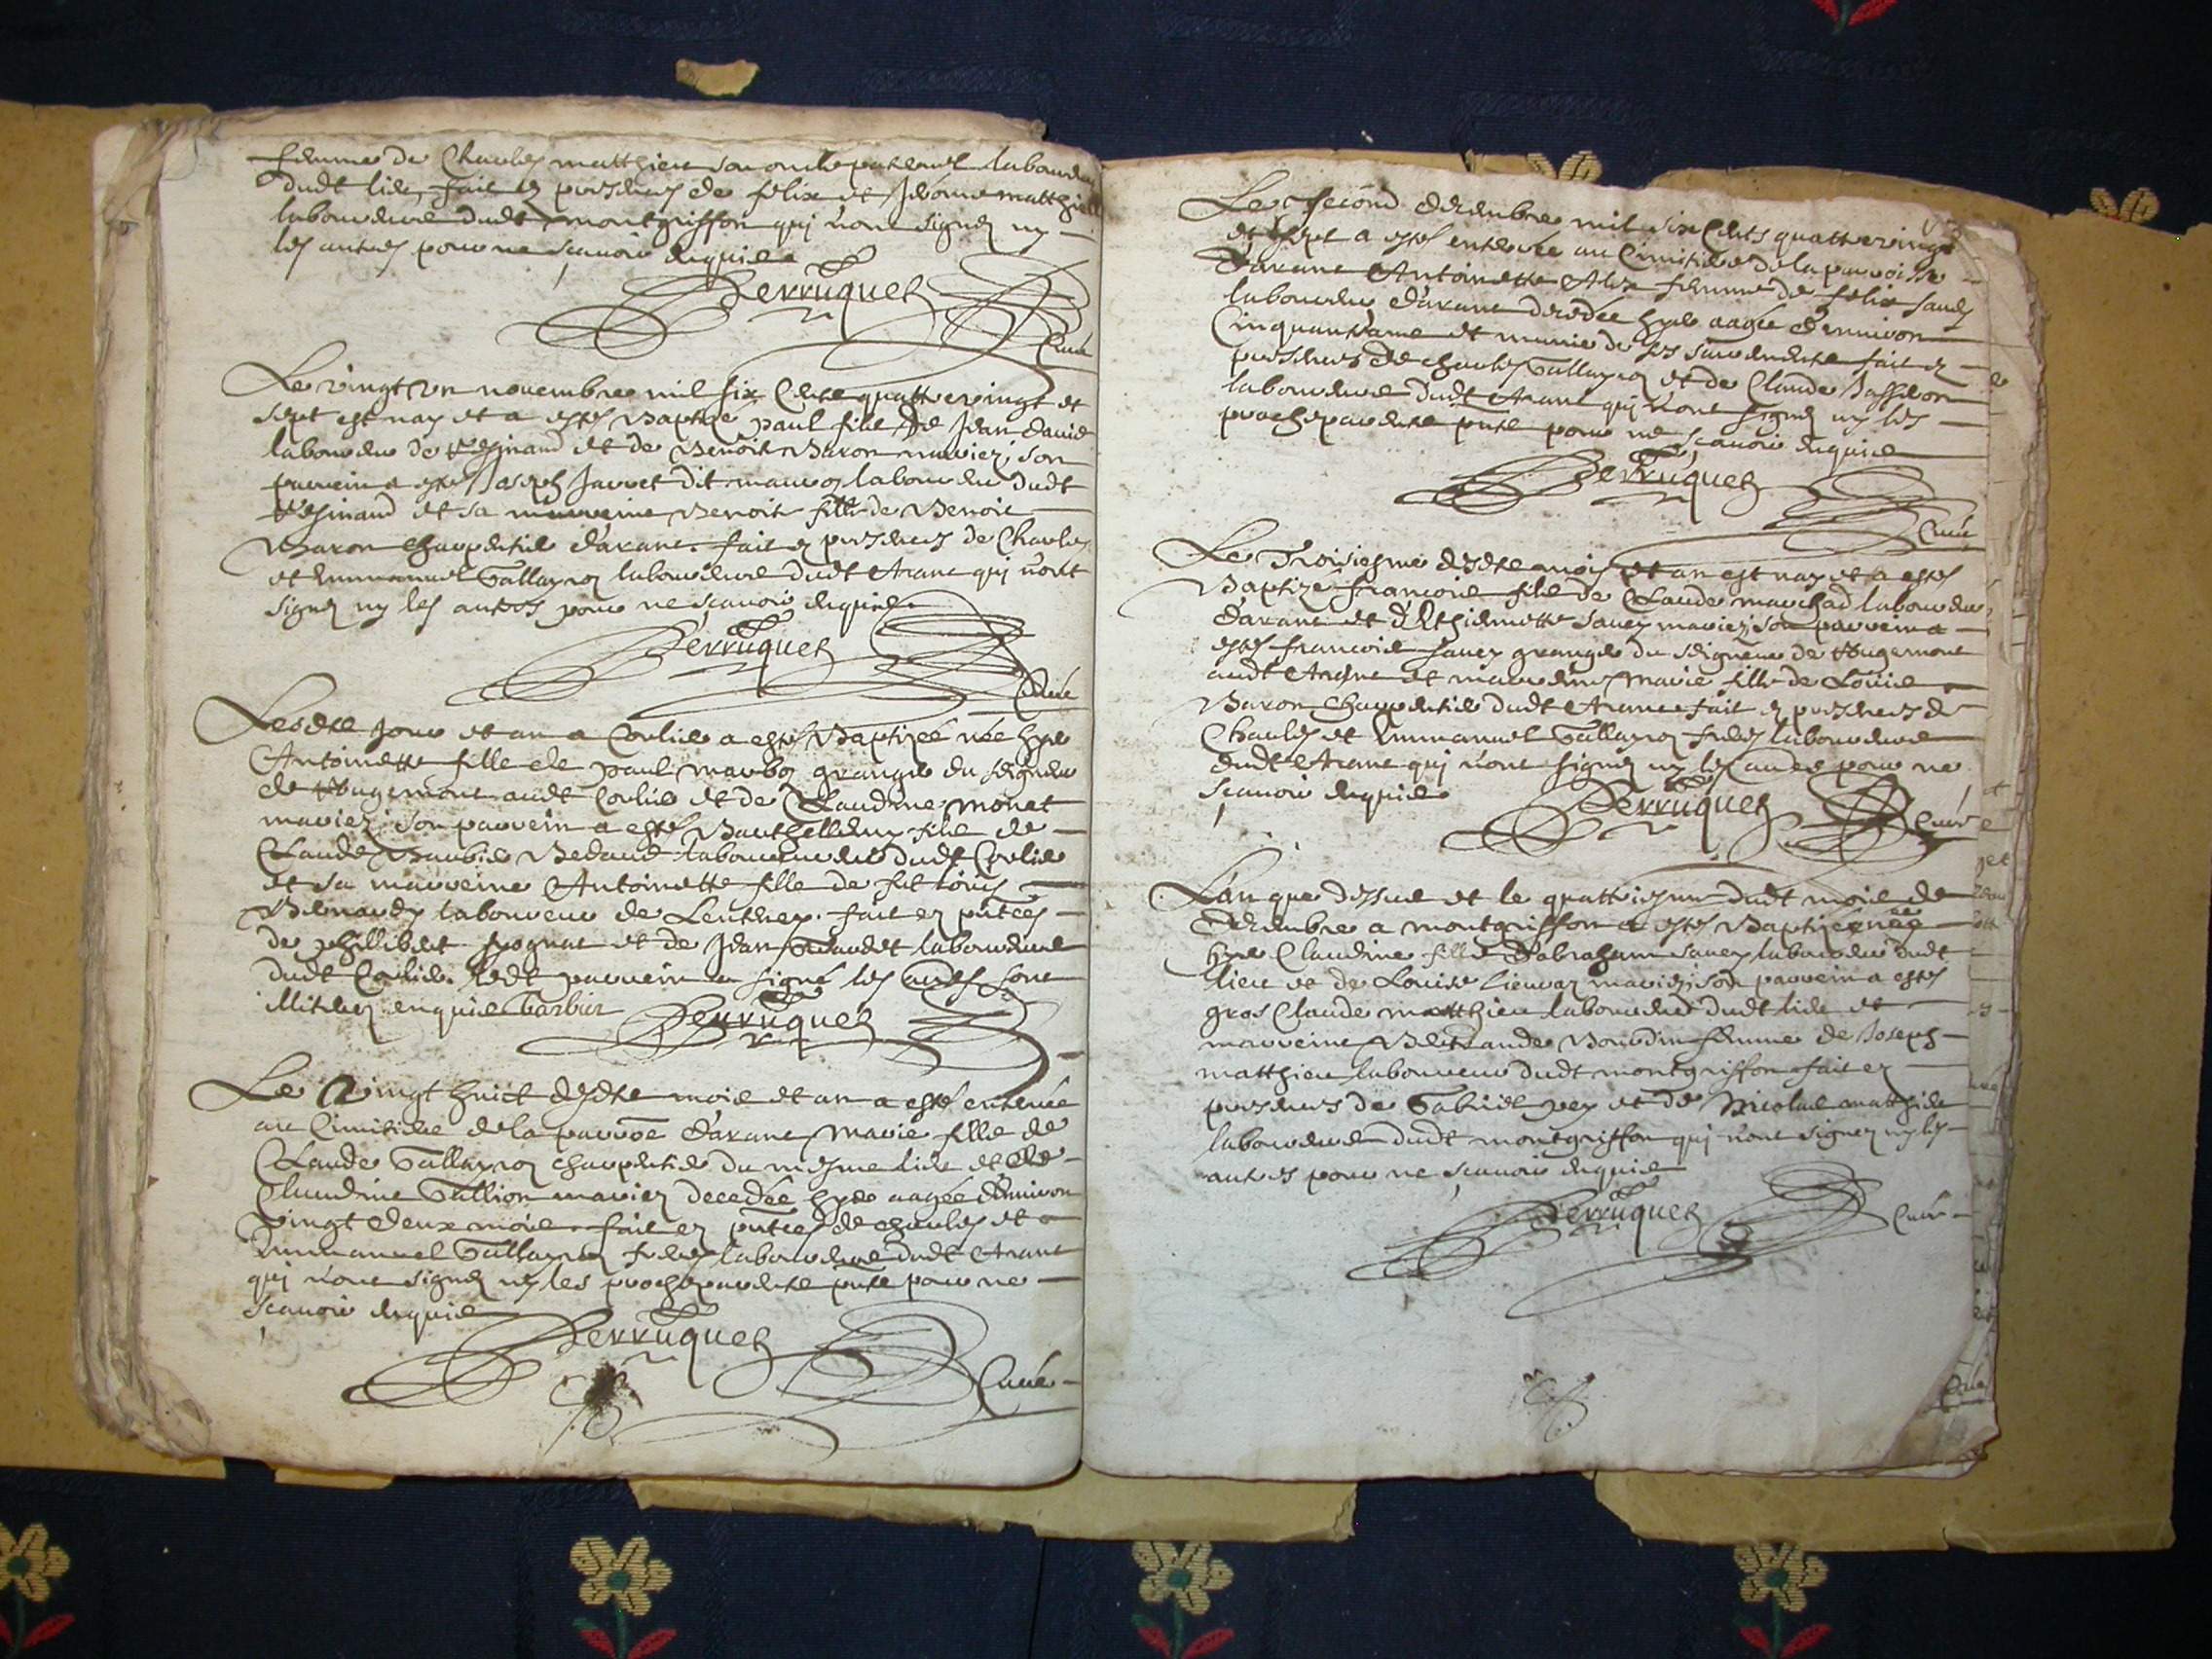 femme de Charles matthieu son oncle paternel laboureur
dudt lieu, fait ez presences de felix et Jerome matthieu
laboureurs dudt montgriffon qui n'ont signez ny
les autres pour ne scavoir enquis
Perruquet
Curé
Le vingt un novembre mil six Cents quattre vingt et
sept est nay et a esté Baptizé paul fils de Jean david
laboureur de et de Benoite Baron mariez; son
parrein a esté Joseph Jarret dit laboureur dudt
et sa marreine Benoite fille de Benoit
Baron charpentier d'aranc. fait ez presences de Charles
et Emmanuel Gallayzoz laboureurs dudt Aranc qui n'ont
signez ny les autres pour ne scavoir enquis
Perruquet
Curé
Lesdts jour et an a Corlier a esté Baptizée née hyer
Antoinette fille de paul granger du seigneur
de Rougemont audt Corlier et de Claudine monet
mariez; son parrein a esté Barthellemy fils de
Claude laboureur dudt Corlier
et sa marreine Antoinette fille de fut louis
laboureur de . fait ez pntces
de phillibert et de Jean laboureurs
dudt Corlier. ledt parrein a signé les autres sont
illiterez enquis barbier
Perruquet
Le vingt huict desdts mois et an a esté enterrée
au Cimitiere de la parroe d'aranc marie fille de
Claude Gallayzoz charpentier du mesme lieu et de
Claudine Gallion mariez decedée hyer aagée d'environ
vingt deux mois. fait ez pntces de charles et
Emmanuel Gallayzoz freres laboureurs dudt Aranc
qui n'ont signez ny les proches parents pnts pour ne
scavoir enquis
Perruquet
Curé
Le second decembre mil six Cents quattre vingt
et sept a esté enterrée au Cimitiere de la parroisse
d'aranc Antoinette Alix femme de felix savey
laboureur d'aranc decedée hyer aagée d'environ
Cinquante ans et munie de ses sacrements fait ez
presences de charles Gallayzoz et de Claude
laboureurs dudt Aranc qui n'ont signez ny les
proches parents pnts pour ne scavoir enquis
Perruquet
Curé
Le Troisiesme desdts mois et an est nay et a esté
Baptizé francois fils de Claude marchad laboureur
d'aranc et d'Ethiennette savey mariez; son parrein a
esté francois savey granger du seigneur de Rougemont
audt Aranc et marreine marie fille de Louis
Baron charpentier dudt Aranc fait ez presences de
Charles et Emmanuel Gallayzoz freres laboureurs
dudt Aranc qui n'ont signez ny les autres pour ne
scavoir enquis
Perruquet
Curé
L'an que dessus et le quattriesme dudt mois de
decembre a montgriffon a esté Baptizée née
hyer Claudine fille d'abraham savey laboureur dudt
lieu et de Louise mariez; son parrein a esté
gros Claude matthieu laboureur dudt lieu et
marreine Bertrande Bourdin femme de Joseph
matthieu laboureur dudt montgriffon fait ez
presences de Gabriel pey et de Nicolas matthieu
laboureurs dudt montgriffon qui n'ont signez ny les
autres pour ne scavoir enquis
Perruquet
Curé